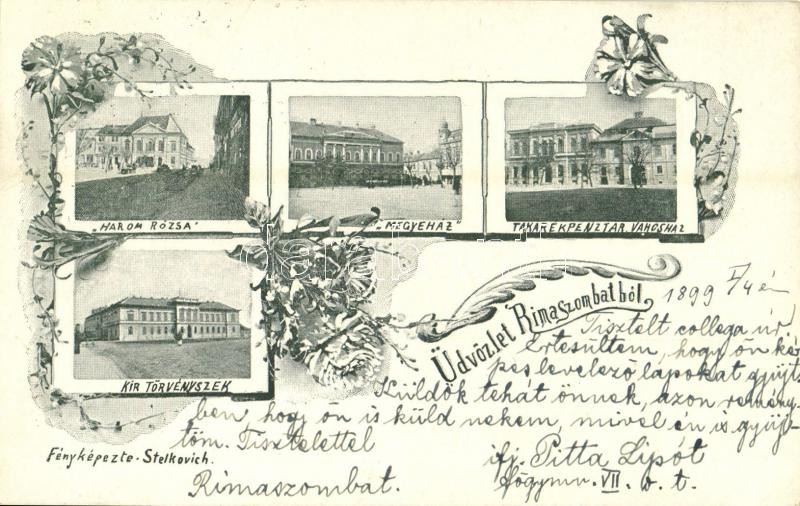 „HÁROM RÓZSA"
„MEGYEHÁZ"
TAKARÉKPÉNZTÁR. VÁROSHÁZ
KIR TÖRVÉNYSZÉK
Üdvözlet Rimaszombatból
1899 I/4 én
Tisztelt collega úr.
Értesültem, hogy ön ké-
pes levelező lapokat gyűjt.
Küldök tehát önnek, azon remény-
ben hogy ön is küld nekem, mivel én is gyűj-
töm. Tisztelettel
ifj. Pitta Lipót
Rimaszombat.
főgymn. VII. o. t.
Fényképezte - Stelkovich.